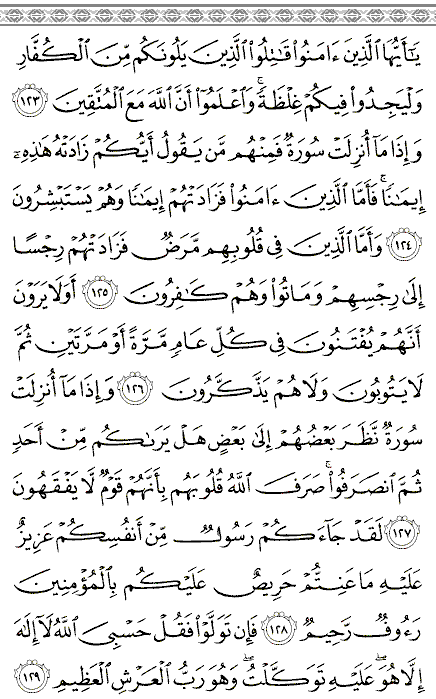 يَٰٓأَيُّهَا ٱلَّذِينَ ءَامَنُوا۟ قَٰتِلُوا۟ ٱلَّذِينَ يَلُونَكُم مِّنَ ٱلْكُفَّارِ
وَلْيَجِدُوا۟ فِيكُمْ غِلْظَةً ۚ وَٱعْلَمُوٓا۟ أَنَّ ٱللَّهَ مَعَ ٱلْمُتَّقِينَ ١٢٣
وَإِذَا مَآ أُنزِلَتْ سُورَةٌ فَمِنْهُم مَّن يَقُولُ أَيُّكُمْ زَادَتْهُ هَٰذِهِۦٓ
إِيمَٰنًا ۚ فَأَمَّا ٱلَّذِينَ ءَامَنُوا۟ فَزَادَتْهُمْ إِيمَٰنًا وَهُمْ يَسْتَبْشِرُونَ
١٢٤ وَأَمَّا ٱلَّذِينَ فِى قُلُوبِهِم مَّرَضٌ فَزَادَتْهُمْ رِجْسًا
إِلَىٰ رِجْسِهِمْ وَمَاتُوا۟ وَهُمْ كَٰفِرُونَ ١٢٥ أَوَلَا يَرَوْنَ
أَنَّهُمْ يُفْتَنُونَ فِى كُلِّ عَامٍ مَّرَّةً أَوْ مَرَّتَيْنِ ثُمَّ
لَا يَتُوبُونَ وَلَا هُمْ يَذَّكَّرُونَ ١٢٦ وَإِذَا مَآ أُنزِلَتْ
سُورَةٌ نَّظَرَ بَعْضُهُمْ إِلَىٰ بَعْضٍ هَلْ يَرَىٰكُم مِّنْ أَحَدٍ
ثُمَّ ٱنصَرَفُوا۟ ۚ صَرَفَ ٱللَّهُ قُلُوبَهُم بِأَنَّهُمْ قَوْمٌ لَّا يَفْقَهُونَ
١٢٧ لَقَدْ جَآءَكُمْ رَسُولٌ مِّنْ أَنفُسِكُمْ عَزِيزٌ
عَلَيْهِ مَا عَنِتُّمْ حَرِيصٌ عَلَيْكُم بِٱلْمُؤْمِنِينَ
رَءُوفٌ رَّحِيمٌ ١٢٨ فَإِن تَوَلَّوْا۟ فَقُلْ حَسْبِىَ ٱللَّهُ لَآ إِلَٰهَ
إِلَّا هُوَ ۖ عَلَيْهِ تَوَكَّلْتُ ۖ وَهُوَ رَبُّ ٱلْعَرْشِ ٱلْعَظِيمِ ١٢٩